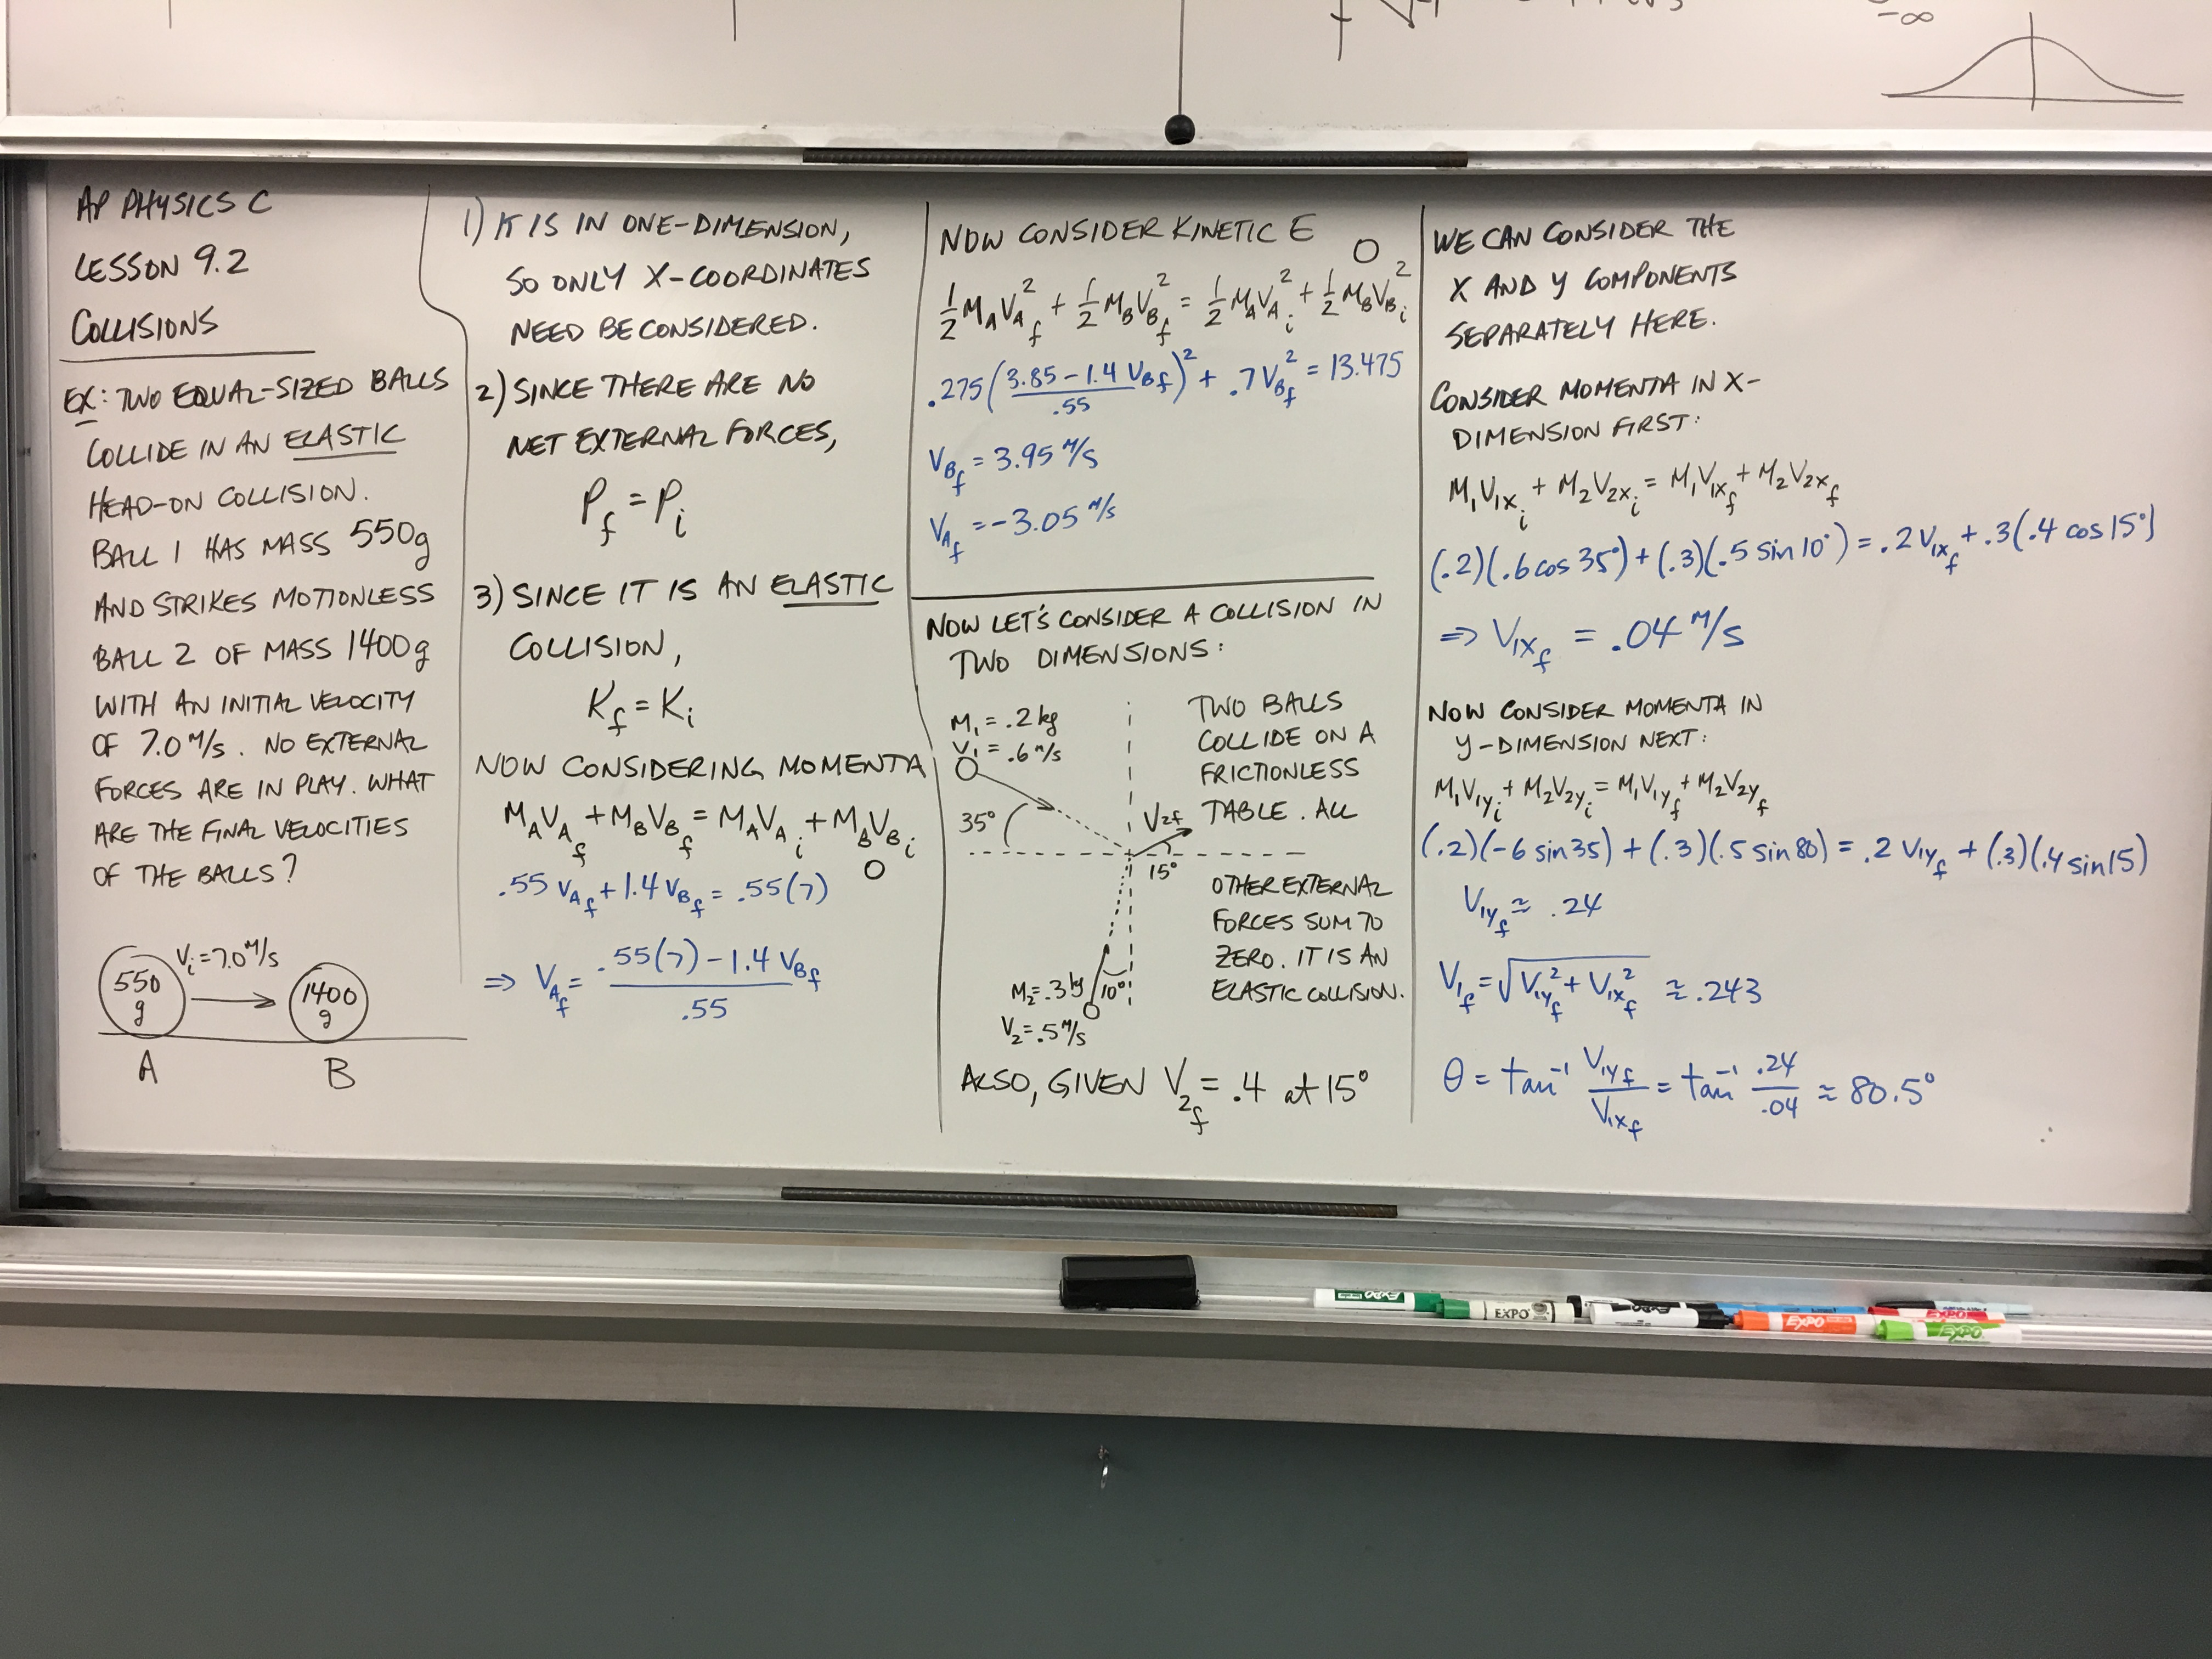 -∞
AP PHYSICS C
LESSON 9.2
COLLISIONS
EX: TWO EQUAL-SIZED BALLS
COLLIDE IN AN ELASTIC
HEAD-ON COLLISION.
BALL 1 HAS MASS 550g
AND STRIKES MOTIONLESS
BALL 2 OF MASS 1400g
WITH AN INITIAL VELOCITY
OF 7.0 M/S. NO EXTERNAL
FORCES ARE IN PLAY. WHAT
ARE THE FINAL VELOCITIES
OF THE BALLS?
550 g
Vi = 7.0 M/S
1400 g
A
B
1) K IS IN ONE-DIMENSION,
SO ONLY X-COORDINATES
NEED BE CONSIDERED.
2) SINCE THERE ARE NO
NET EXTERNAL FORCES,
Pf = Pi
3) SINCE IT IS AN ELASTIC
COLLISION,
Kf = Ki
NOW CONSIDERING MOMENTA
MAVAf + MBVBf = MAVAi + MBVBi
O
.55 VAf + 1.4 VBf = .55(7)
⇒ VAf = .55(7) - 1.4 VBf / .55
NOW CONSIDER KINETIC E
O
1/2 MAVAf² + 1/2 MBVBf² = 1/2 MAVAi² + 1/2 MBVBi²
.275(3.85 - 1.4 VBf / .55)² + .7VBf² = 13.475
VBf = 3.95 M/S
VAf = -3.05 M/S
NOW LET'S CONSIDER A COLLISION IN
TWO DIMENSIONS:
M1 = .2 kg
V1 = .6 M/S
35°
V2f
15°
M2 = .3 kg
10°
V2 = .5 M/S
TWO BALLS
COLLIDE ON A
FRICTIONLESS
TABLE. ALL
OTHER EXTERNAL
FORCES SUM TO
ZERO. IT IS AN
ELASTIC COLLISION.
ALSO, GIVEN V2f = .4 at 15°
WE CAN CONSIDER THE
X AND Y COMPONENTS
SEPARATELY HERE.
CONSIDER MOMENTA IN X-
DIMENSION FIRST:
M1V1xi + M2V2xi = M1V1xf + M2V2xf
(.2)(.6 cos 35°) + (.3)(.5 sin 10°) = .2 V1xf + .3(.4 cos 15°)
⇒ V1xf = .04 M/S
NOW CONSIDER MOMENTA IN
Y-DIMENSION NEXT:
M1V1yi + M2V2yi = M1V1yf + M2V2yf
(.2)(-6 sin 35) + (.3)(.5 sin 80) = .2 V1yf + (.3)(.4 sin 15)
V1yf ≈ .24
V1f = √V1yf² + V1xf² ≈ .243
θ = tan⁻¹ V1yf / V1xf = tan⁻¹ .24 / .04 ≈ 80.5°
EXPO
EXPO
EXPO
EXPO
EXPO
EXPO